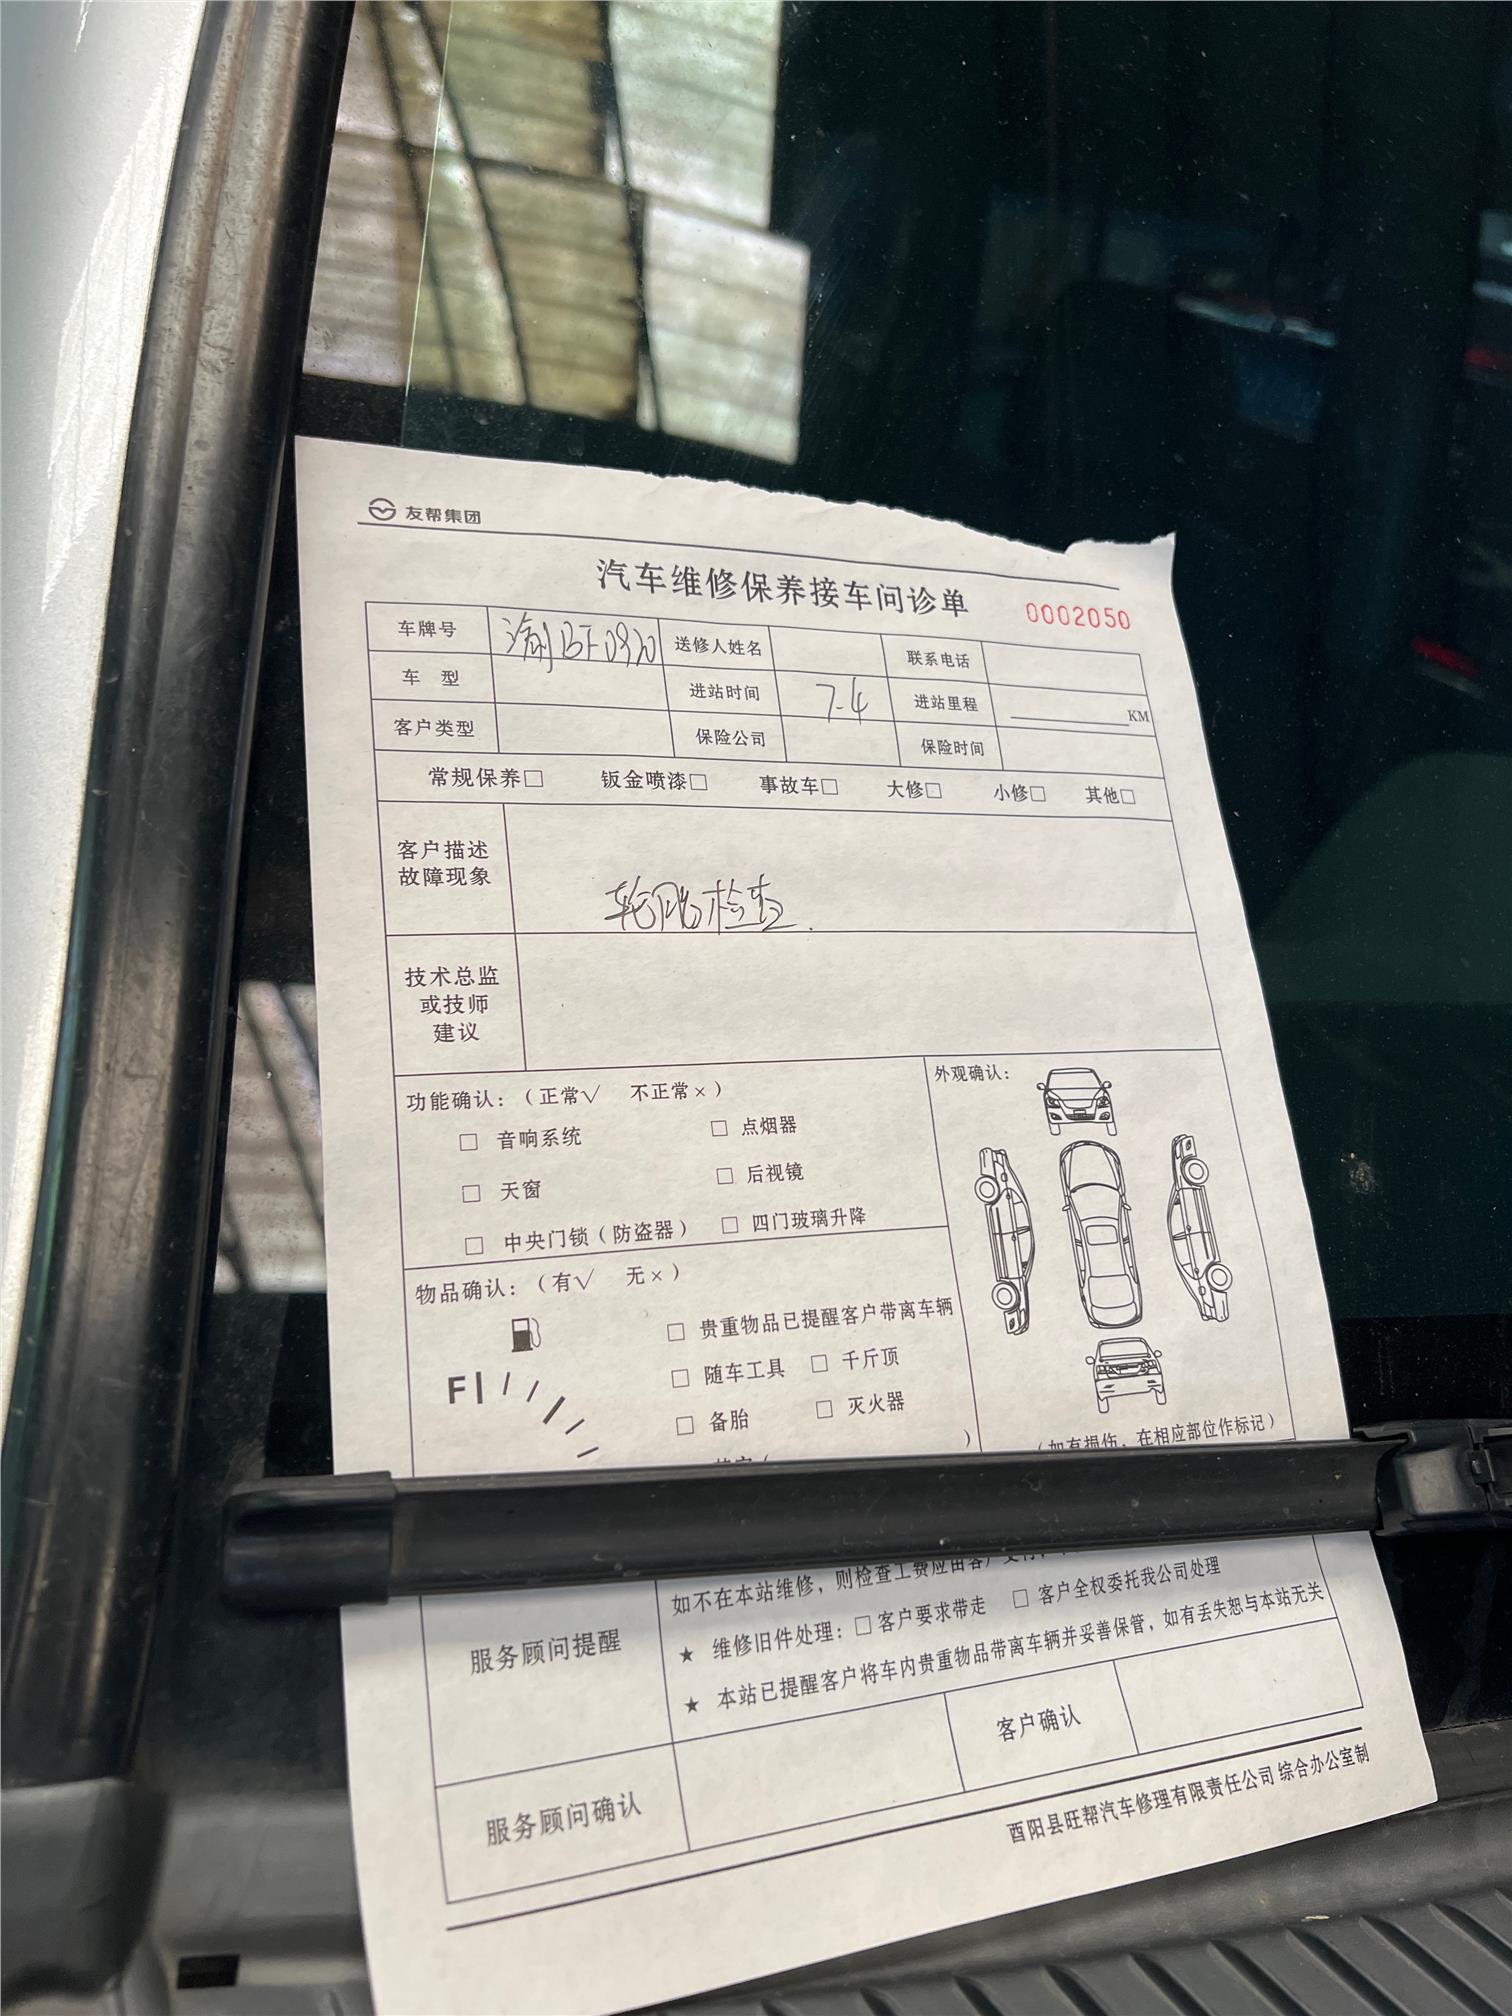 友帮集团
汽车维修保养接车问诊单
0002050
车牌号 送修人姓名 联系电话
车 型 进站时间 7-4 进站里程 KM
客户类型 保险公司 保险时间
常规保养□ 钣金喷漆□ 事故车□ 大修□ 小修□ 其他□
客户描述
故障现象
轮胎检查.
技术总监
或技师
建议
功能确认：（正常√ 不正常×）
□ 音响系统 □ 点烟器
□ 天窗 □ 后视镜
□ 中央门锁（防盗器） □ 四门玻璃升降
外观确认：
（如有损伤，在相应部位作标记）
物品确认：（有√ 无×）
F
□ 贵重物品已提醒客户带离车辆
□ 随车工具 □ 千斤顶
□ 备胎 □ 灭火器
）
服务顾问提醒
如不在本站维修，则检查工费应由客户支付
★ 维修旧件处理：□客户要求带走 □ 客户全权委托我公司处理
★ 本站已提醒客户将车内贵重物品带离车辆并妥善保管，如有丢失恕与本站无关
服务顾问确认 客户确认
酉阳县旺帮汽车修理有限责任公司 综合办公室制